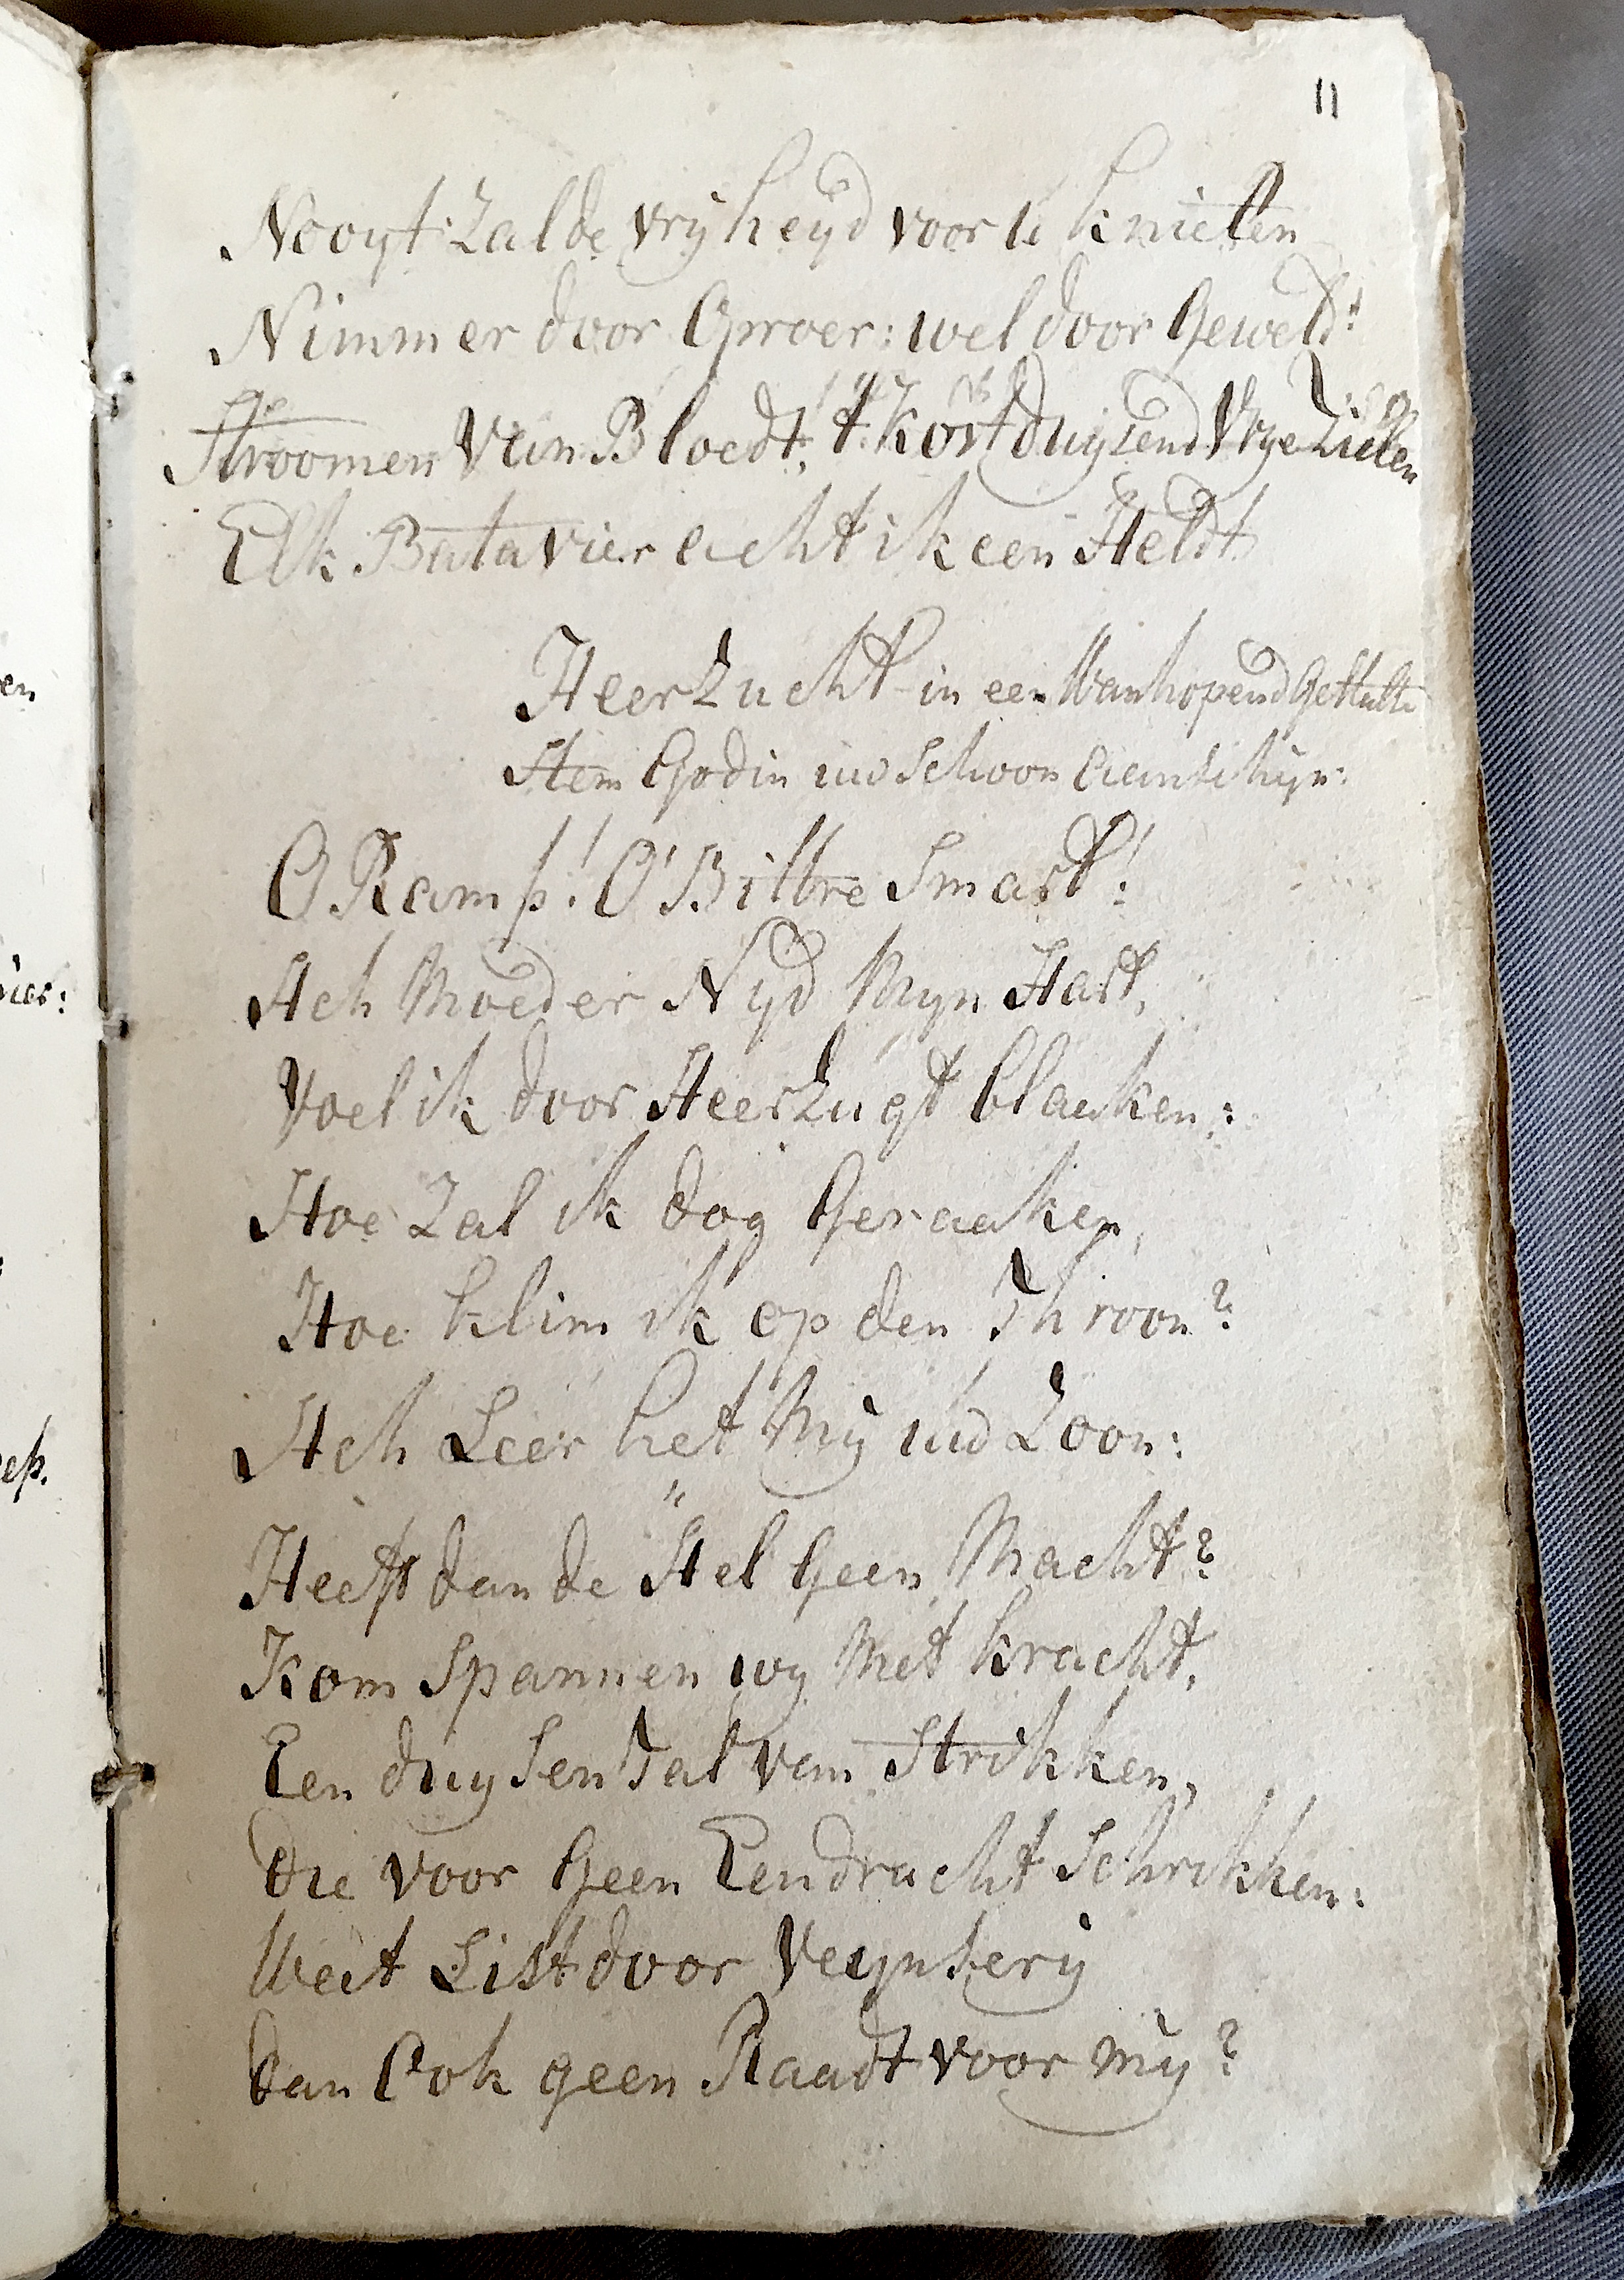 11
Nooyt Zal de vryheyd voor U knielen
Nimmer door Oproer: wel door Gewelt:
Stroomen Van Bloedt, t. kost duyzend Vrye Zielen
Elk Batavier acht ik een Heldt
Heerzucht in een Wanhopend Gestalte
Stem Godin uw Schoon Aanschyn:
O Ramp! O Bittre Smart!
Ach Moeder Nyd Myn Hart,
Voel ik door Heerzugt blaaken:
Hoe Zal ik dog Geraaken,
Hoe klim ik op den Throon?
Ach Leer het My uw Zoon:
Heeft dan de Hel Geen Macht?
Kom Spannen wy Met kracht,
Een duysen Tal van Strikken,
die voor Geen Eendracht Schrikken:
Weet List door Veynsery
dan Ook geen Raadt voor my?
en
ep.